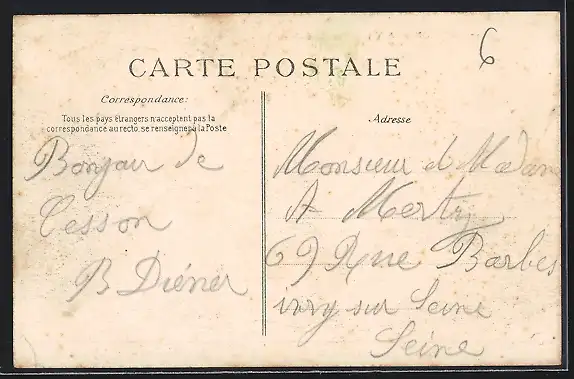 6
CARTE POSTALE
Correspondance:
Tous les pays étrangers n'acceptent pas la
correspondance au recto, se renseigner à la Poste
Bonjour de
Cesson
B Diéner
Adresse
Monsieur et Madame
A Mertz
69 Rue Barbes
ivry sur Seine
Seine